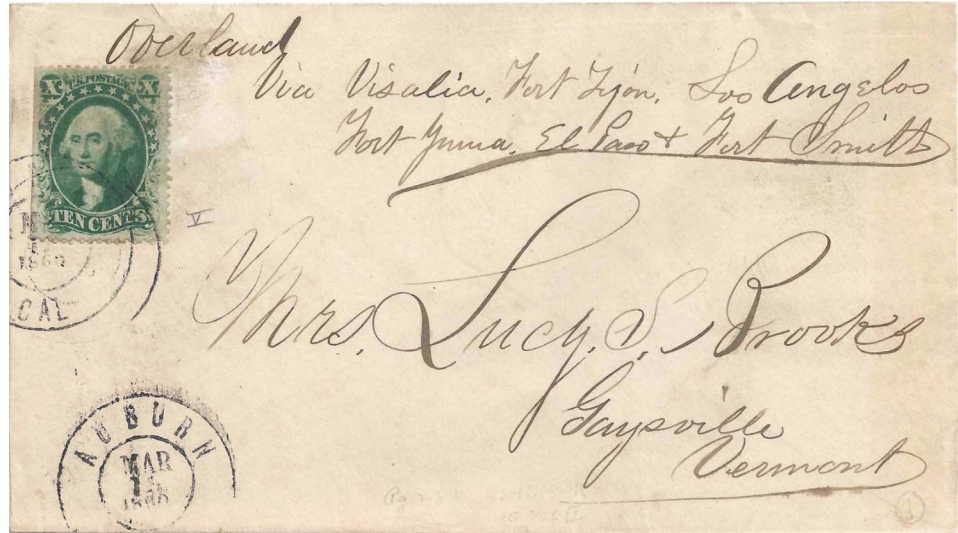 Overland
Via Visalia, Fort Tijón, Los Angelos
Fort Yuma, El Paso & Fort Smith
U.S. POSTAGE
X X
TEN CENTS
V
1860
CAL
Mrs. Lucy. S. Brooks
Gaysville
Vermont
AUBURN
MAR
1860